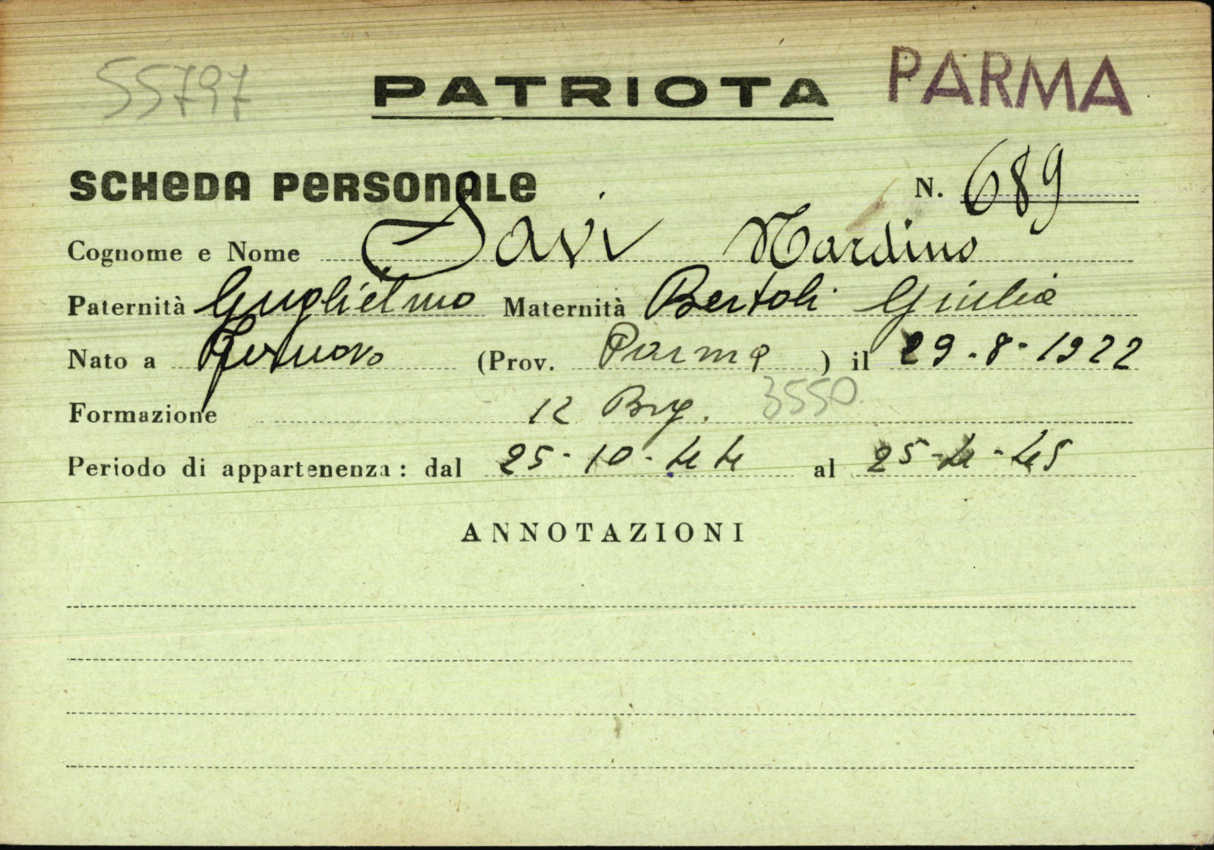 55797 PATRIOTA PARMA
SCHEDA PERSONALE N. 689
Cognome e Nome Savi Nardino
Paternità Guglielmo Maternità Bertoli Giulia
Nato a Fornovo (Prov. Parma ) il 29-8-1922
Formazione 12 Brg. 3550
Periodo di appartenenza: dal 25-10-44 al 25-4-45
ANNOTAZIONI